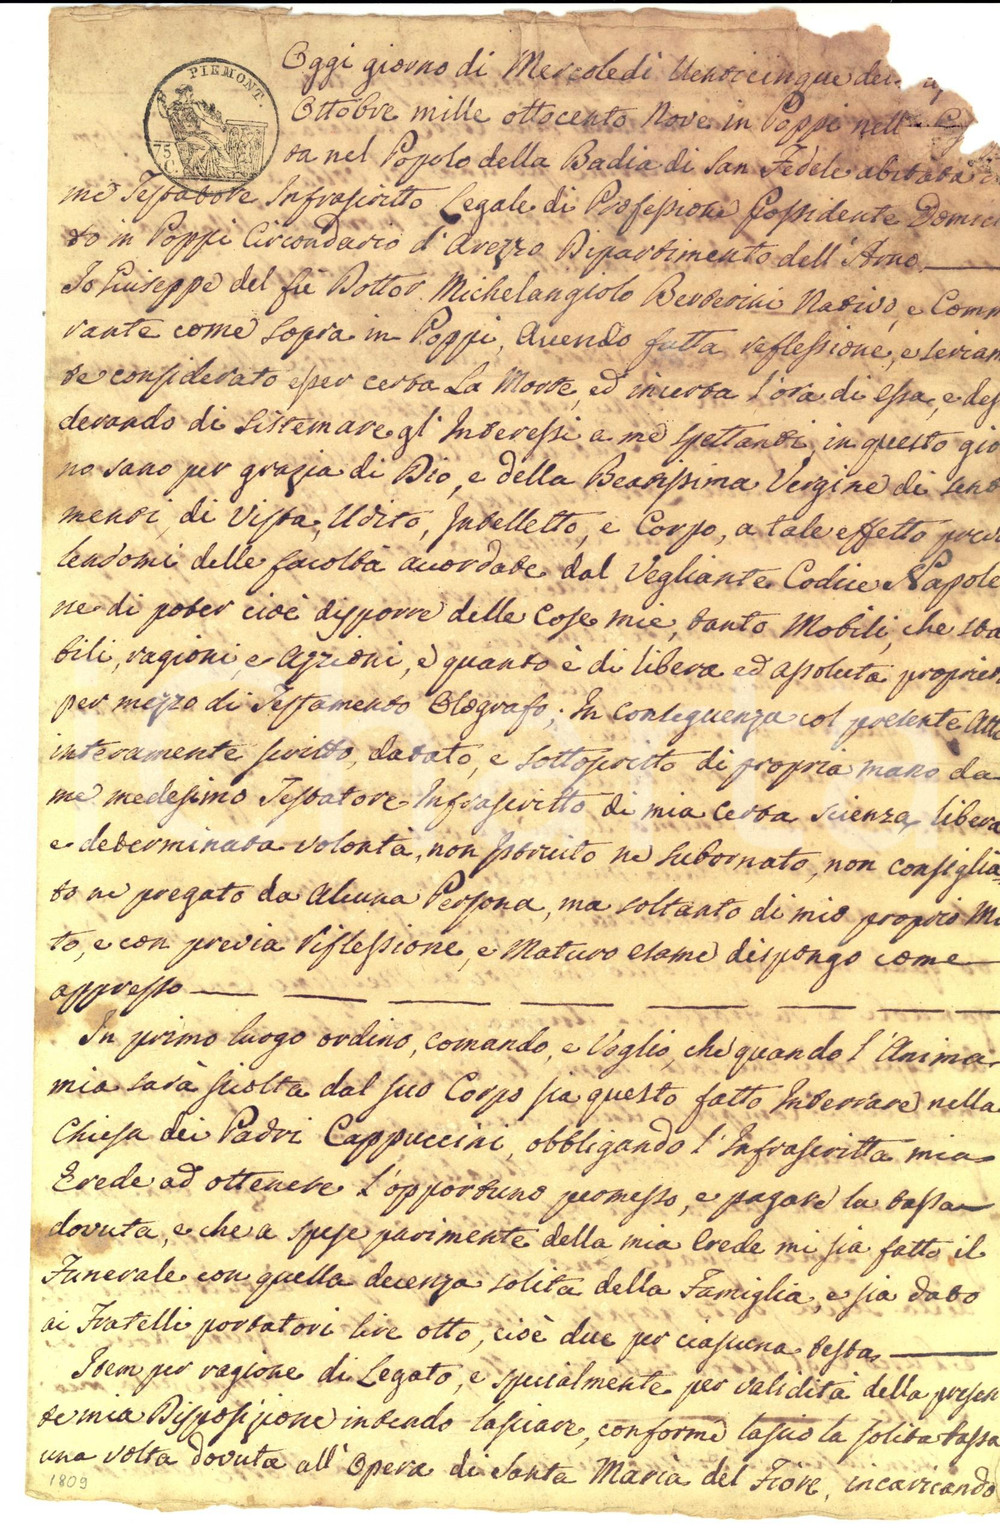 PIEMONT.
75
C.
Oggi giorno di Mercoledì Venticinque del
Ottobre mille ottocento Nove in Poppi nell
ta nel Popolo della Badia di San Fedele abitata
me Testatore Infrascritto Legale di Professione Possidente Domici
to in Poppi Circondario d'Arezzo Dipartimento dell'Arno
Io Giuseppe del fù Dottor Michelangiolo Berterini Nativo, e Comm
rante come sopra in Poppi, Avendo fatta reflessione, e seriam
te considerato esser certa La Morte, ed incerta l'ora di Essa, e des
derando di sistemare gl'Interessi a me spettanti, in questo gior
no sano per grazia di Dio, e della Beatissima Vergine di sent
menti, di Vista, Udito, Intelletto, e Corpo, a tale effetto preva
lendomi delle facoltà accordate dal Vegliante Codice Napole
ne di poter cioè disporre delle Cose mie, tanto Mobili, che sta
bili, ragioni, e Azzioni, e quanto è di libera ed assoluta propriet
per mezzo di Testamento Olografo; In conseguenza col presente Atto
interamente scritto, datato, e sottoscritto di propria mano da
me medesimo Testatore Infrascritto di mia Certa scienza, libera
e determinata volontà, non Istruito ne subornato, non consiglia
to ne pregato da Alcuna Persona, ma soltanto di mio proprio Mo
to, e con previa riflessione, e Maturo esame dispongo come
appresso
In primo luogo ordino, comando, e Voglio, che quando l'Anima
mia sarà sciolta dal suo Corpo sia questo fatto Interrare nella
Chiesa dei Padri Cappuccini, obbligando l'Infrascritta mia
Erede ad ottenere l'opportuno permesso, e pagare la tassa
dovuta, e che a spese parimente della mia Erede mi sia fatto il
Funerale con quella decenza solita della Famiglia, e sia dato
ai Fratelli portatori lire otto, cioè due per ciascuna testa
Item per ragione di Legato, e specialmente per validità della presen
te mia Disposizione intendo lasciare, conforme lascio la solita tassa
una volta dovuta all'Opera di Santa Maria del Fiore, incaricando
1809